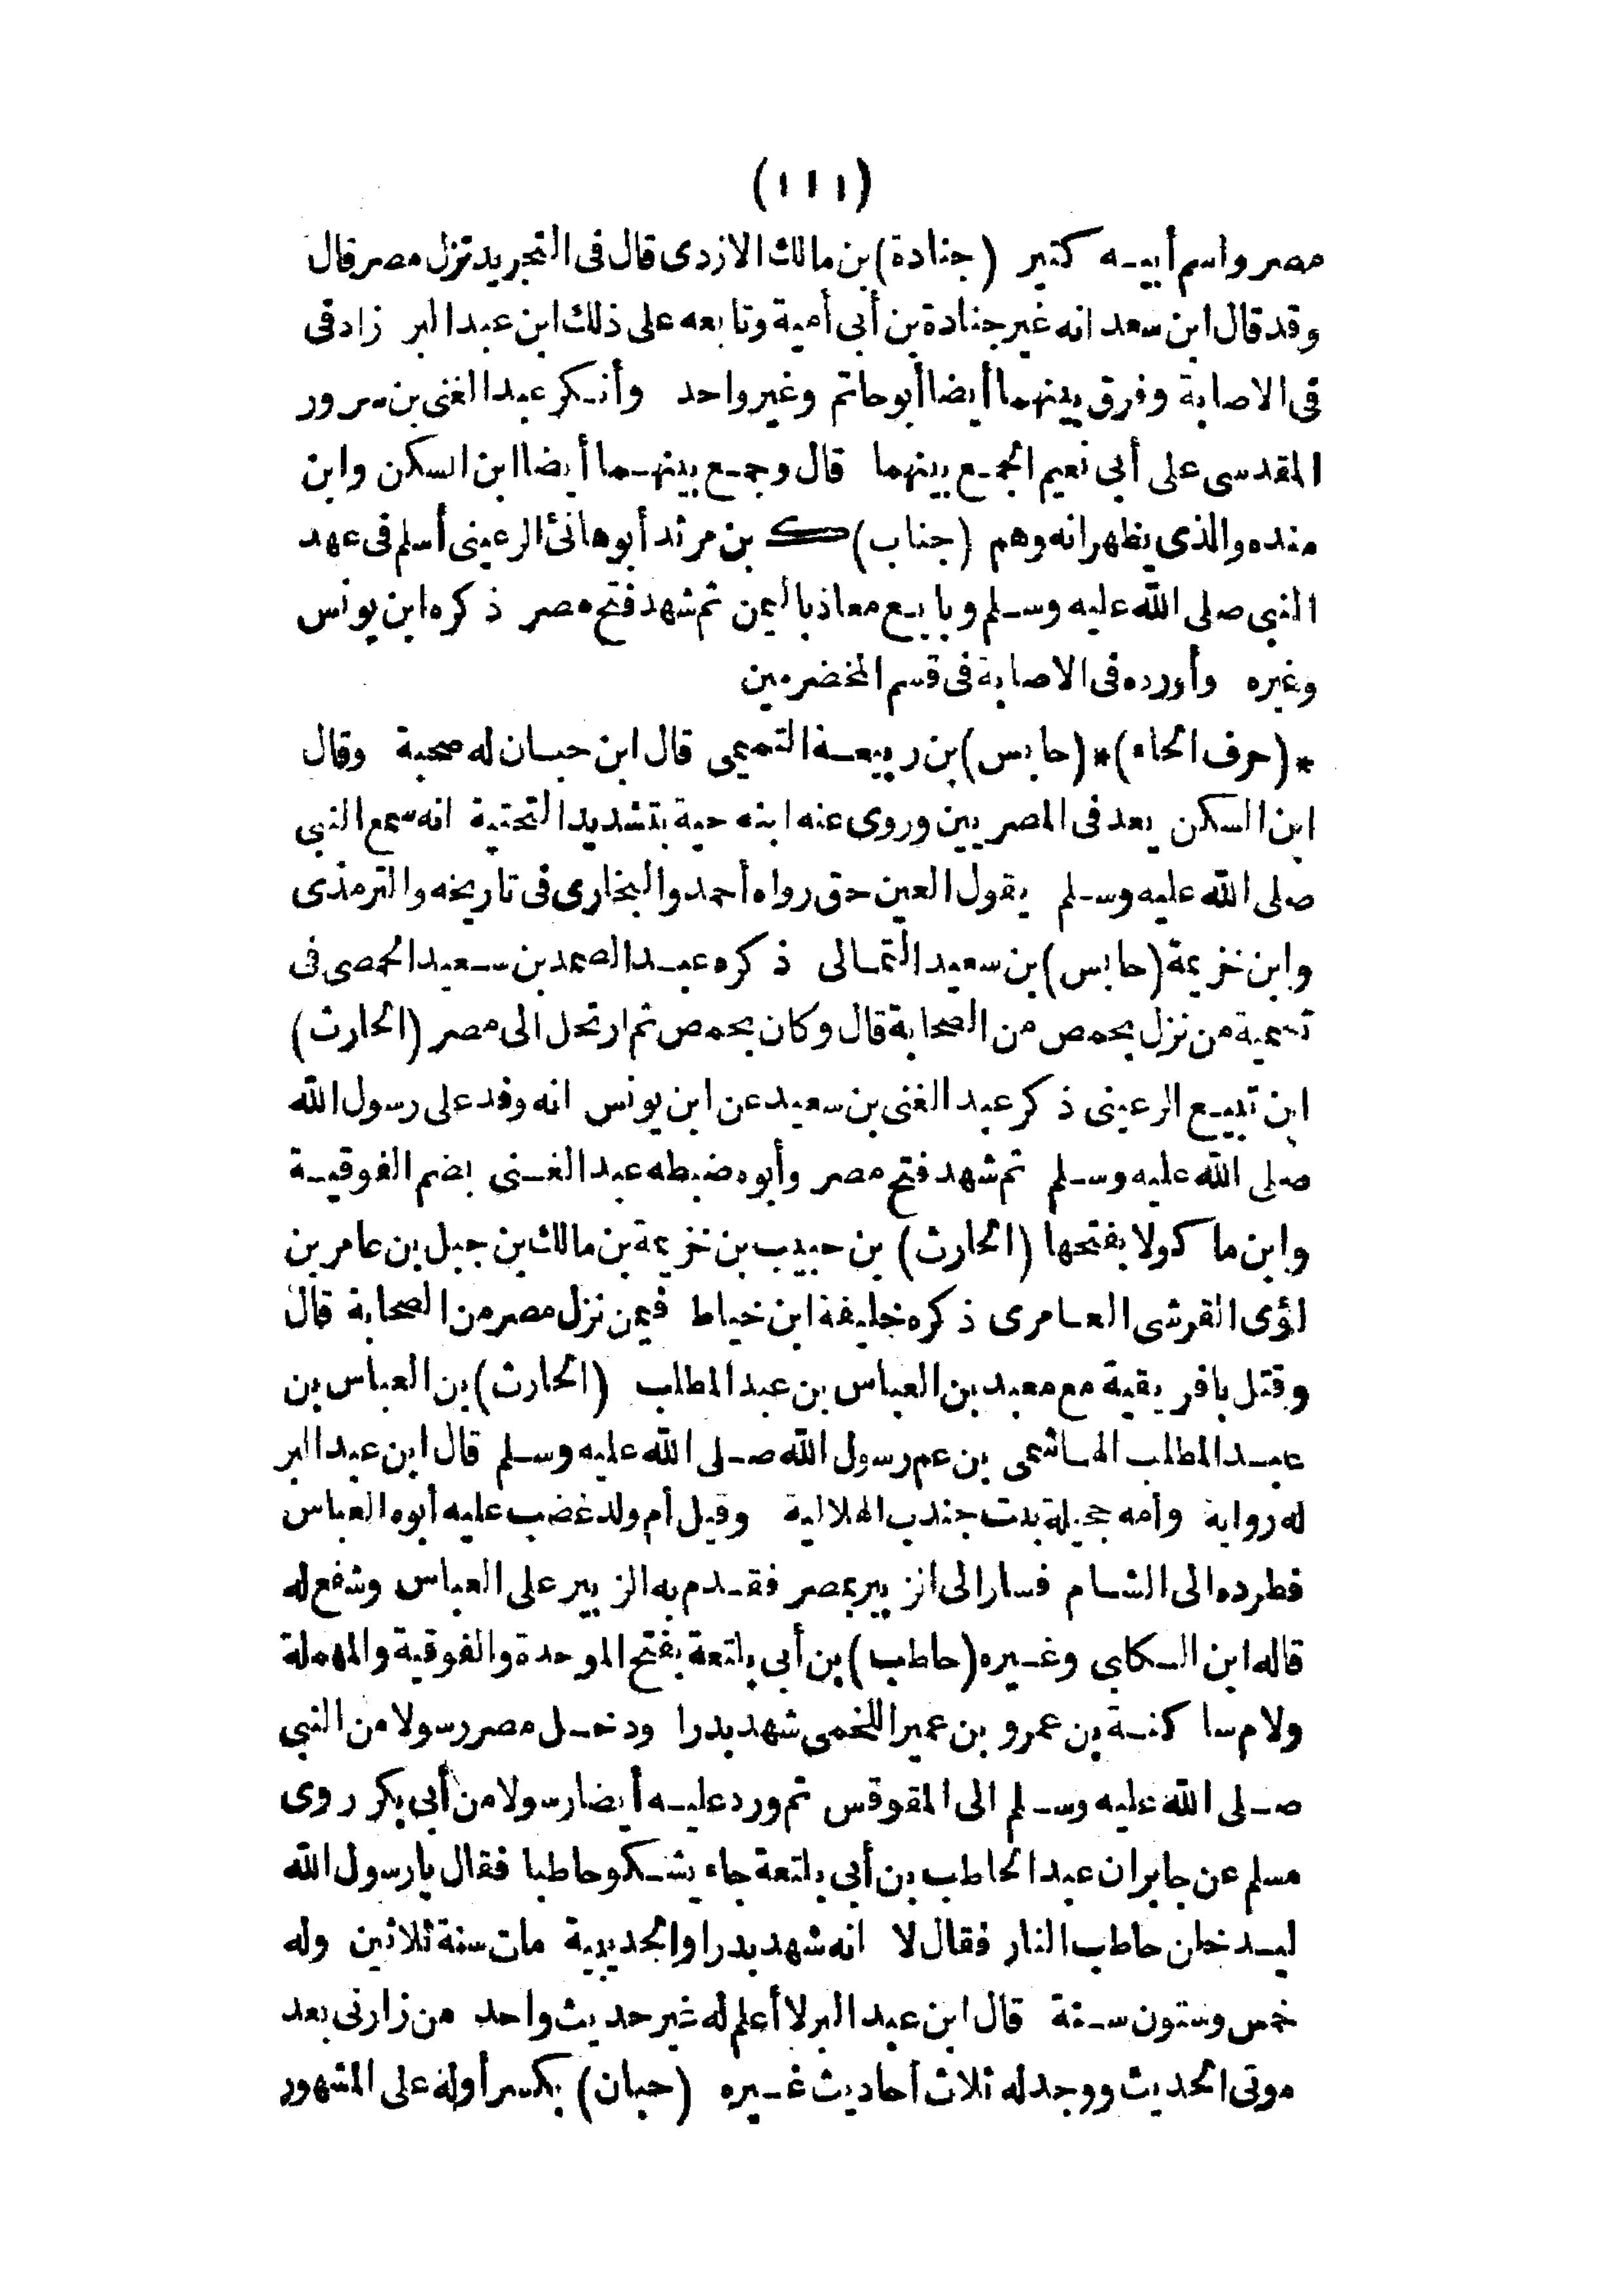 (١١١)
مصر واسم أبيه كثير (جنادة) بن مالك الازدى قال فى التجريد نزل مصر قال
وقد قال ابن سعد انه غير جنادة بن أبى أمية وتابعه على ذلك ابن عبد البر زاد فى
فى الاصابة وفرق بينهما أيضا أبو حاتم وغير واحد وأنكر عبد الغنى بن سرور
المقدسى على أبى نعيم الجمع بينهما قال وجمع بينهما أيضا ابن السكن وابن
منده والذى يظهر انه وهم (جناب) ك بن مرثد أبو هانئ الرعينى أسلم فى عهد
النبى صلى الله عليه وسلم وبايع معاذ باليمن ثم شهد فتح مصر ذكره ابن يونس
وغيره وأورده فى الاصابة فى قسم المخضرمين
*(حرف الحاء)* (حابس) بن ربيعة التميمى قال ابن حبان له صحبة وقال
ابن السكن يعد فى المصريين وروى عنه ابنه حية بتشديد التحتية انه سمع النبى
صلى الله عليه وسلم يقول العين حق رواه أحمد والبخارى فى تاريخه والترمذى
وابن خزيمة (حابس) بن سعيد الثمالى ذكره عبد الصمد بن سعيد الحمصى فى
تسمية من نزل بحمص من الصحابة قال وكان بحمص ثم ارتحل الى مصر (الحارث)
ابن تبيع الرعينى ذكر عبد الغنى بن سعيد عن ابن يونس انه وفد على رسول الله
صلى الله عليه وسلم ثم شهد فتح مصر وأبوه ضبطه عبد الغنى بضم الفوقية
وابن ماكولا بفتحها (الحارث) بن حبيب بن خزيمة بن مالك بن جبل بن عامر بن
لؤى القرشى العامرى ذكره خليفة ابن خياط فيمن نزل مصر من الصحابة قال
وقتل بافريقية مع معبد بن العباس بن عبد المطلب (الحارث) بن العباس بن
عبد المطلب الهاشمى بن عم رسول الله صلى الله عليه وسلم قال ابن عبد البر
له رواية وأمه حجيلة بنت جندب الهلالية وقيل أم ولد غضب عليه أبوه العباس
فطرده الى الشام فسار الى الزبير بمصر فقدم به الزبير على العباس وشفع له
قاله ابن الكلبى وغيره (حاطب) بن أبى بلتعة بفتح الموحدة والفوقية والمهملة
ولام ساكنة بن عمرو بن عمير اللخمى شهد بدرا ودخل مصر رسولا من النبى
صلى الله عليه وسلم الى المقوقس ثم ورد عليه أيضا رسولا من أبى بكر روى
مسلم عن جابر ان عبد الحاطب بن أبى بلتعة جاء يشكو حاطبا فقال يا رسول الله
ليدخلن حاطب النار فقال لا انه شهد بدرا والحديبية مات سنة ثلاثين وله
خمس وستون سنة قال ابن عبد البر لا أعلم له غير حديث واحد من زارنى بعد
موتى الحديث ووجد له ثلاث أحاديث غيره (حبان) بكسر أوله على المشهور